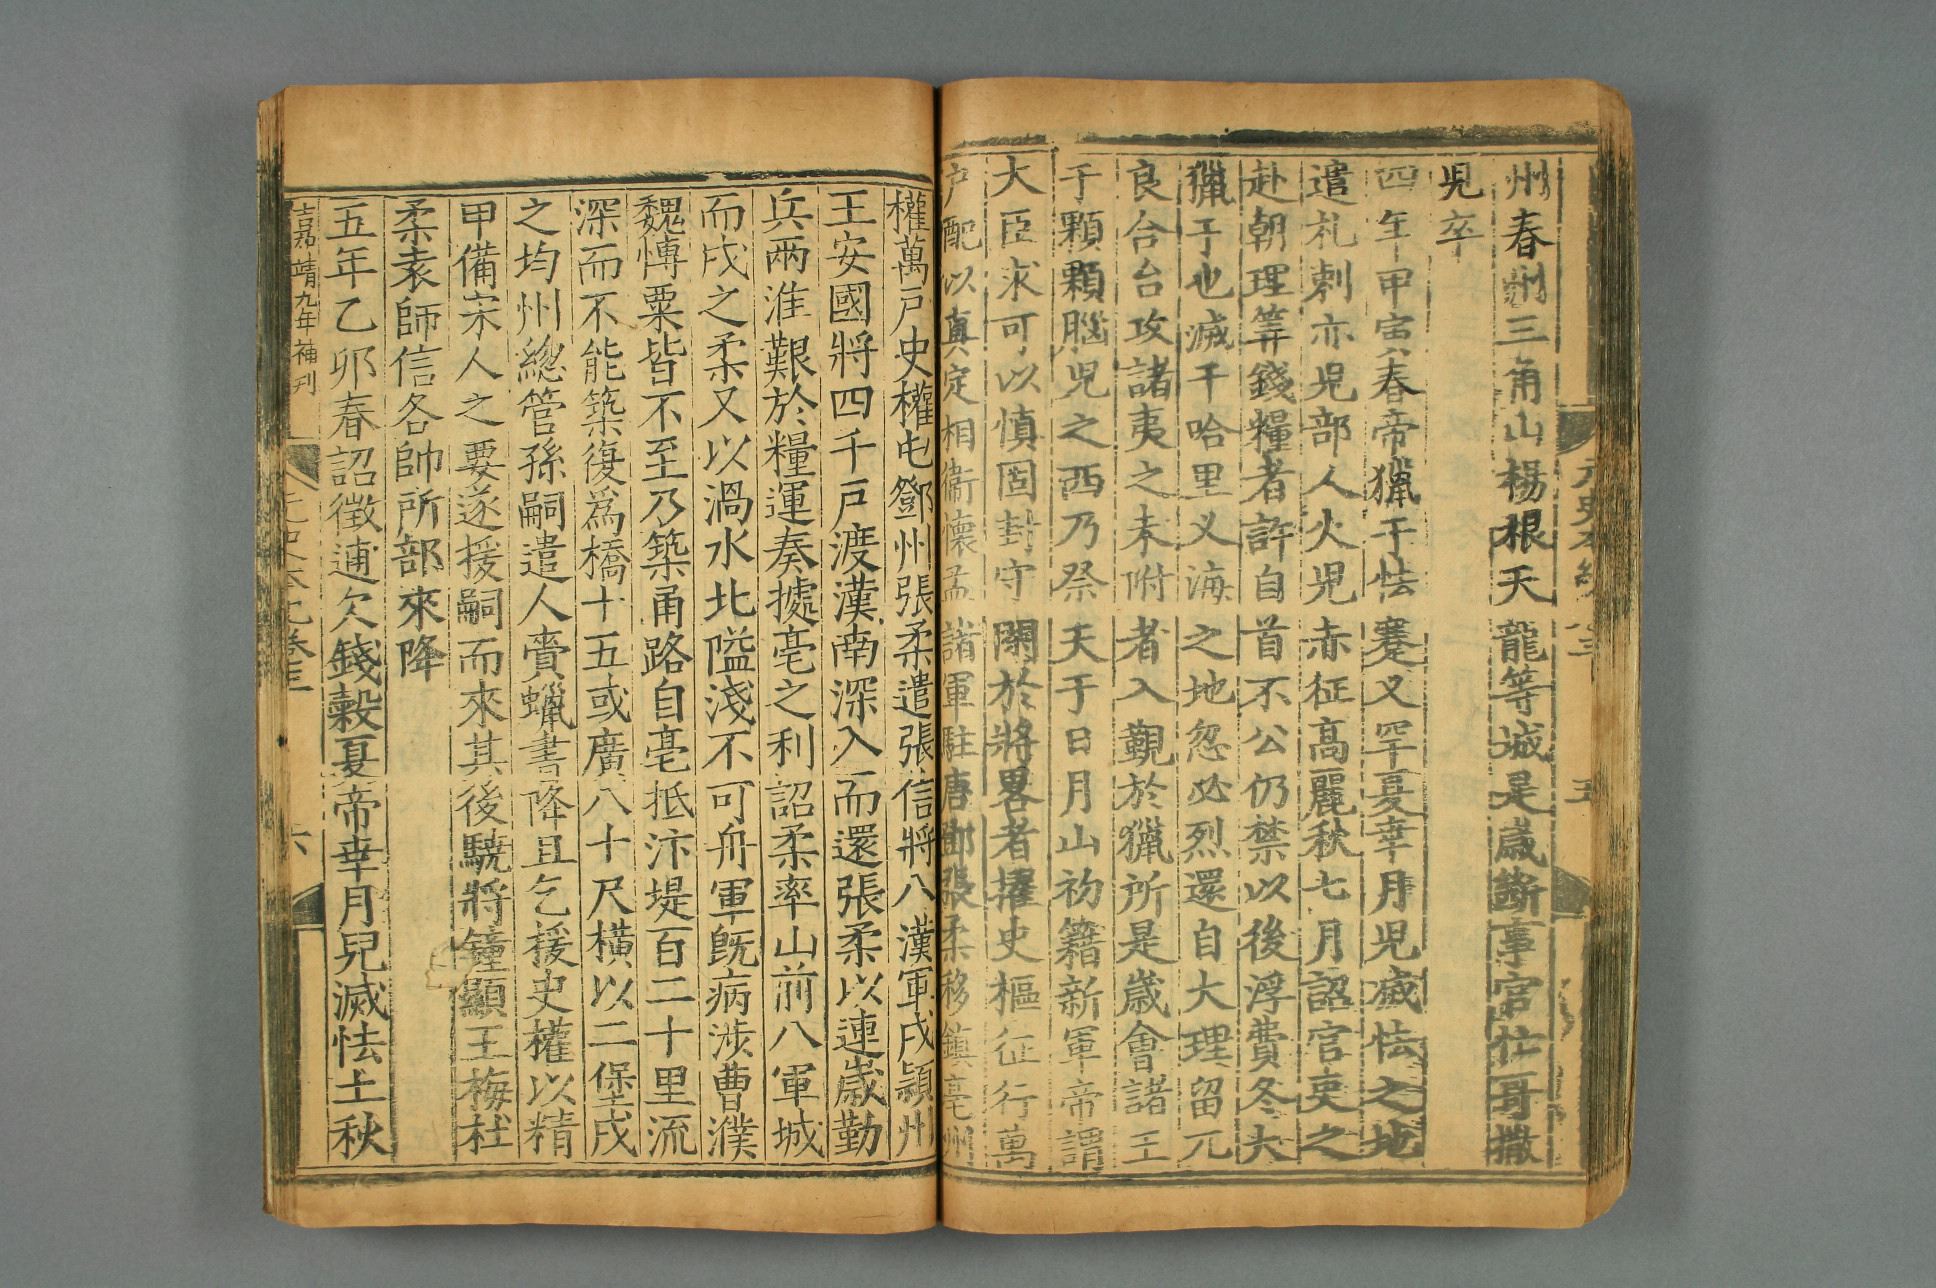 州春州三角山楊根天龍等城是歲斷事官忙哥撒
児卒
四年甲寅春帝獵于怯蹇叉罕夏幸月児滅怯之地
遣札剌亦児部人火児赤征高麗秋七月詔官吏之
赴朝理筭錢糧者許自首不公仍禁以後浮費冬大
獵于也滅干哈里叉海之地忽必烈還自大理留兀
良合台攻諸夷之未附者入覲於獵所是歲會諸王
于顆顆腦児之西乃祭天于日月山初籍新軍帝謂
大臣求可以慎固封守閑於將畧者擢史樞征行萬
户配以真定相衞懷孟諸軍駐唐鄧張柔移鎮亳州
權萬户史權屯鄧州張柔遣張信將八漢軍戍頴州
王安國將四千户渡漢南深入而還張柔以連歲勤
兵兩淮艱於糧運奏據亳之利詔柔率山前八軍城
而戍之柔又以渦水北隘淺不可舟軍既病涉曹濮
魏愽粟皆不至乃築甬路自亳抵汴堤百二十里流
深而不能築復爲橋十五或廣八十尺橫以二堡戍
之均州總管孫嗣遣人賫蠟書降且乞援史權以精
甲備宋人之要遂援嗣而來其後驍將鍾顯王梅杜
柔袁師信各帥所部來降
五年乙卯春詔徵逋欠錢穀夏帝幸月兒滅怯土秋
嘉靖九年補刊
元史本紀卷三
六